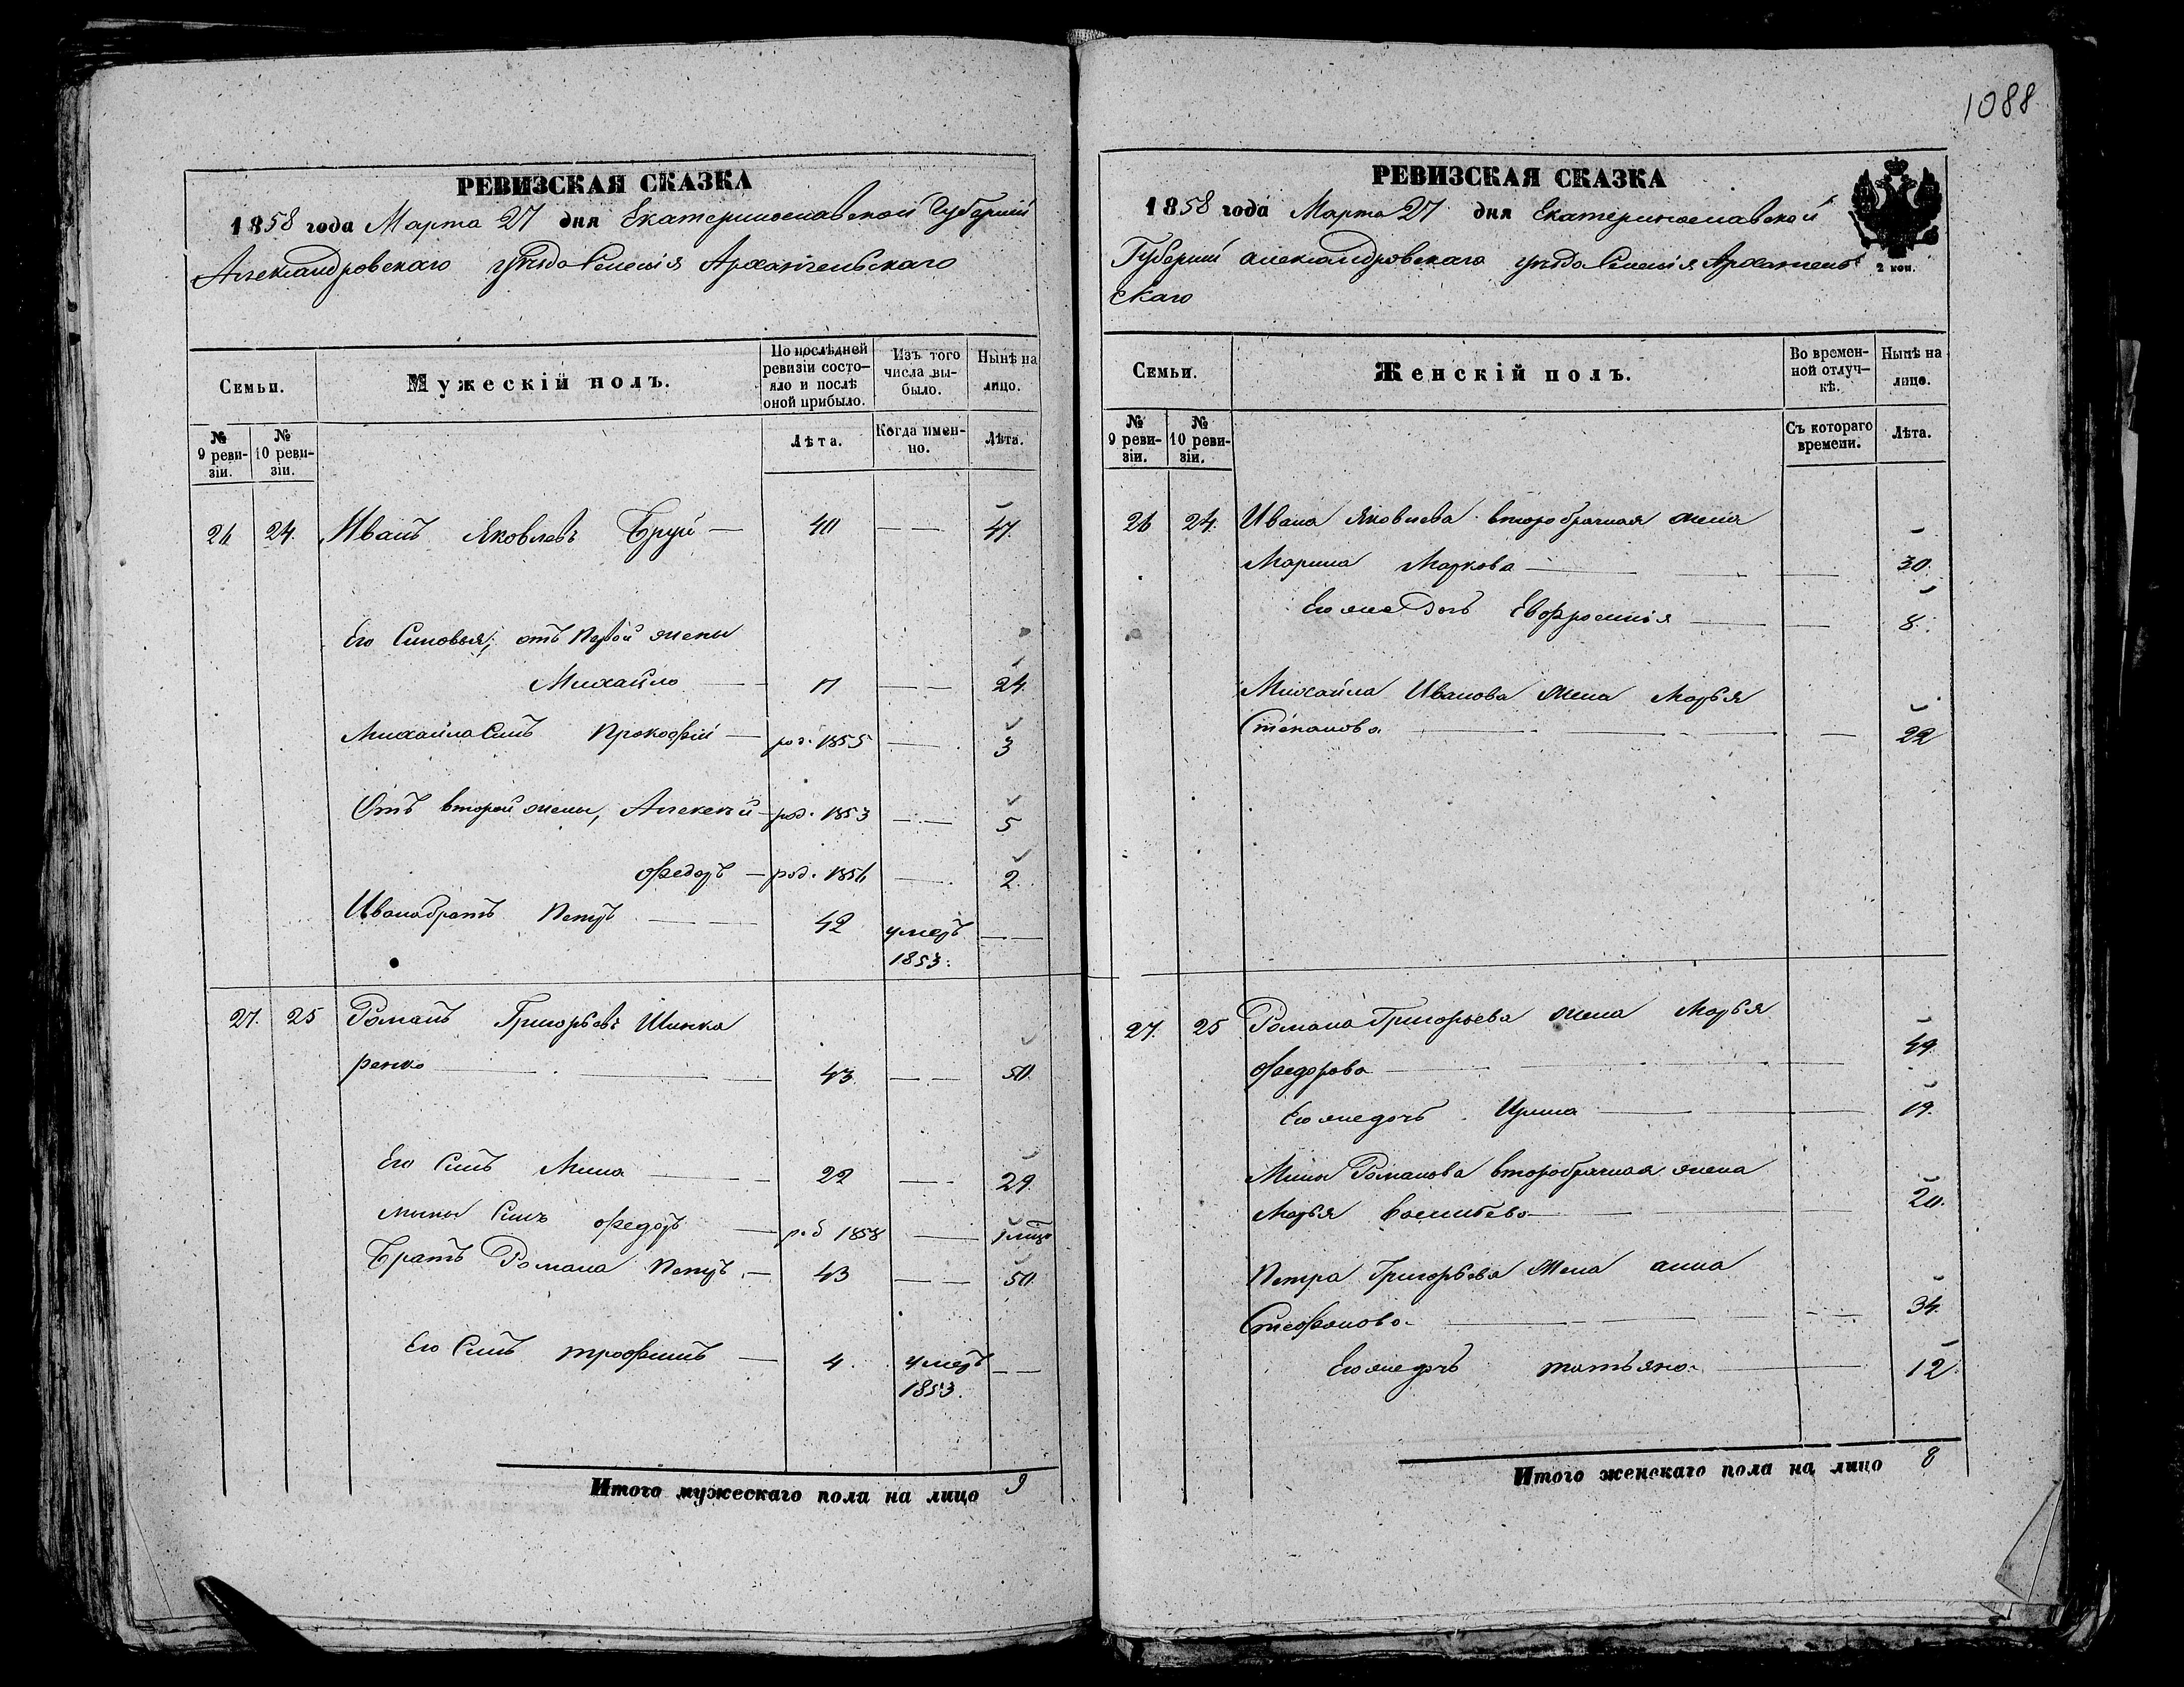 РЕВИЗСКАЯ СКАЗКА
1858 года Марта 27 дня Екатеринославской Губерніи
Александровскаго уѣзда Селенія Архангельскаго
Семьи. Мужескій полъ. По послѣдней ревизіи состояло и послѣ оной прибыло. Изъ того числа выбыло. Нынѣ на лицо.
№ 9 ревизіи. № 10 ревизіи. Лѣта. Когда именно. Лѣта.
26 24. Иванъ Яковлевъ Бруй — 40 — — 47.
Его Сыновья, отъ Первой жены
Михайло — 17 — — 24.
Михайла Сынъ Прокофій — род. 1855 — 3
Отъ второй жены, Алексѣй — род. 1853 — — 5
Федоръ — род. 1856 — 2.
Ивана братъ Петръ — 42 умеръ — —
1853.
27. 25 Романъ Григорьевъ Шинка
ренко — 43. — — 50.
Его Сынъ Мина — 22 — — 29.
Мины Сынъ Федоръ — род 1858 —
Братъ Романа Петръ — 43 — — 50
Его Сынъ Трофимъ — 4. умеръ — —
1853.
Итого мужескаго пола на лицо 9
1088
РЕВИЗСКАЯ СКАЗКА
1858 года Марта 27 дня Екатеринославской
Губерніи Александровскаго уѣзда Селенія Архангель
скаго
2 коп.
Семьи. Женскій полъ. Во временной отлучкѣ. Нынѣ на лицо.
№ 9 ревизіи. № 10 ревизіи. Съ котораго времени. Лѣта.
26 24. Ивана Яковлева второбрачная жена
Марина Маркова — — — 30.
Его же дочь Евфросинія — — 8.
Михайла Иванова жена Марья
Степанова — — — 22
27. 25 Романа Григорьева жена Марья
Федорова — — — 49.
Его же дочь Ирина — — 19.
Мины Романова второбрачная жена
Марья Васильева — — 20.
Петра Григорьева жена Анна
Стефанова — — — 34.
Его же дочь Татьяна — — 12.
Итого женскаго пола на лицо 8